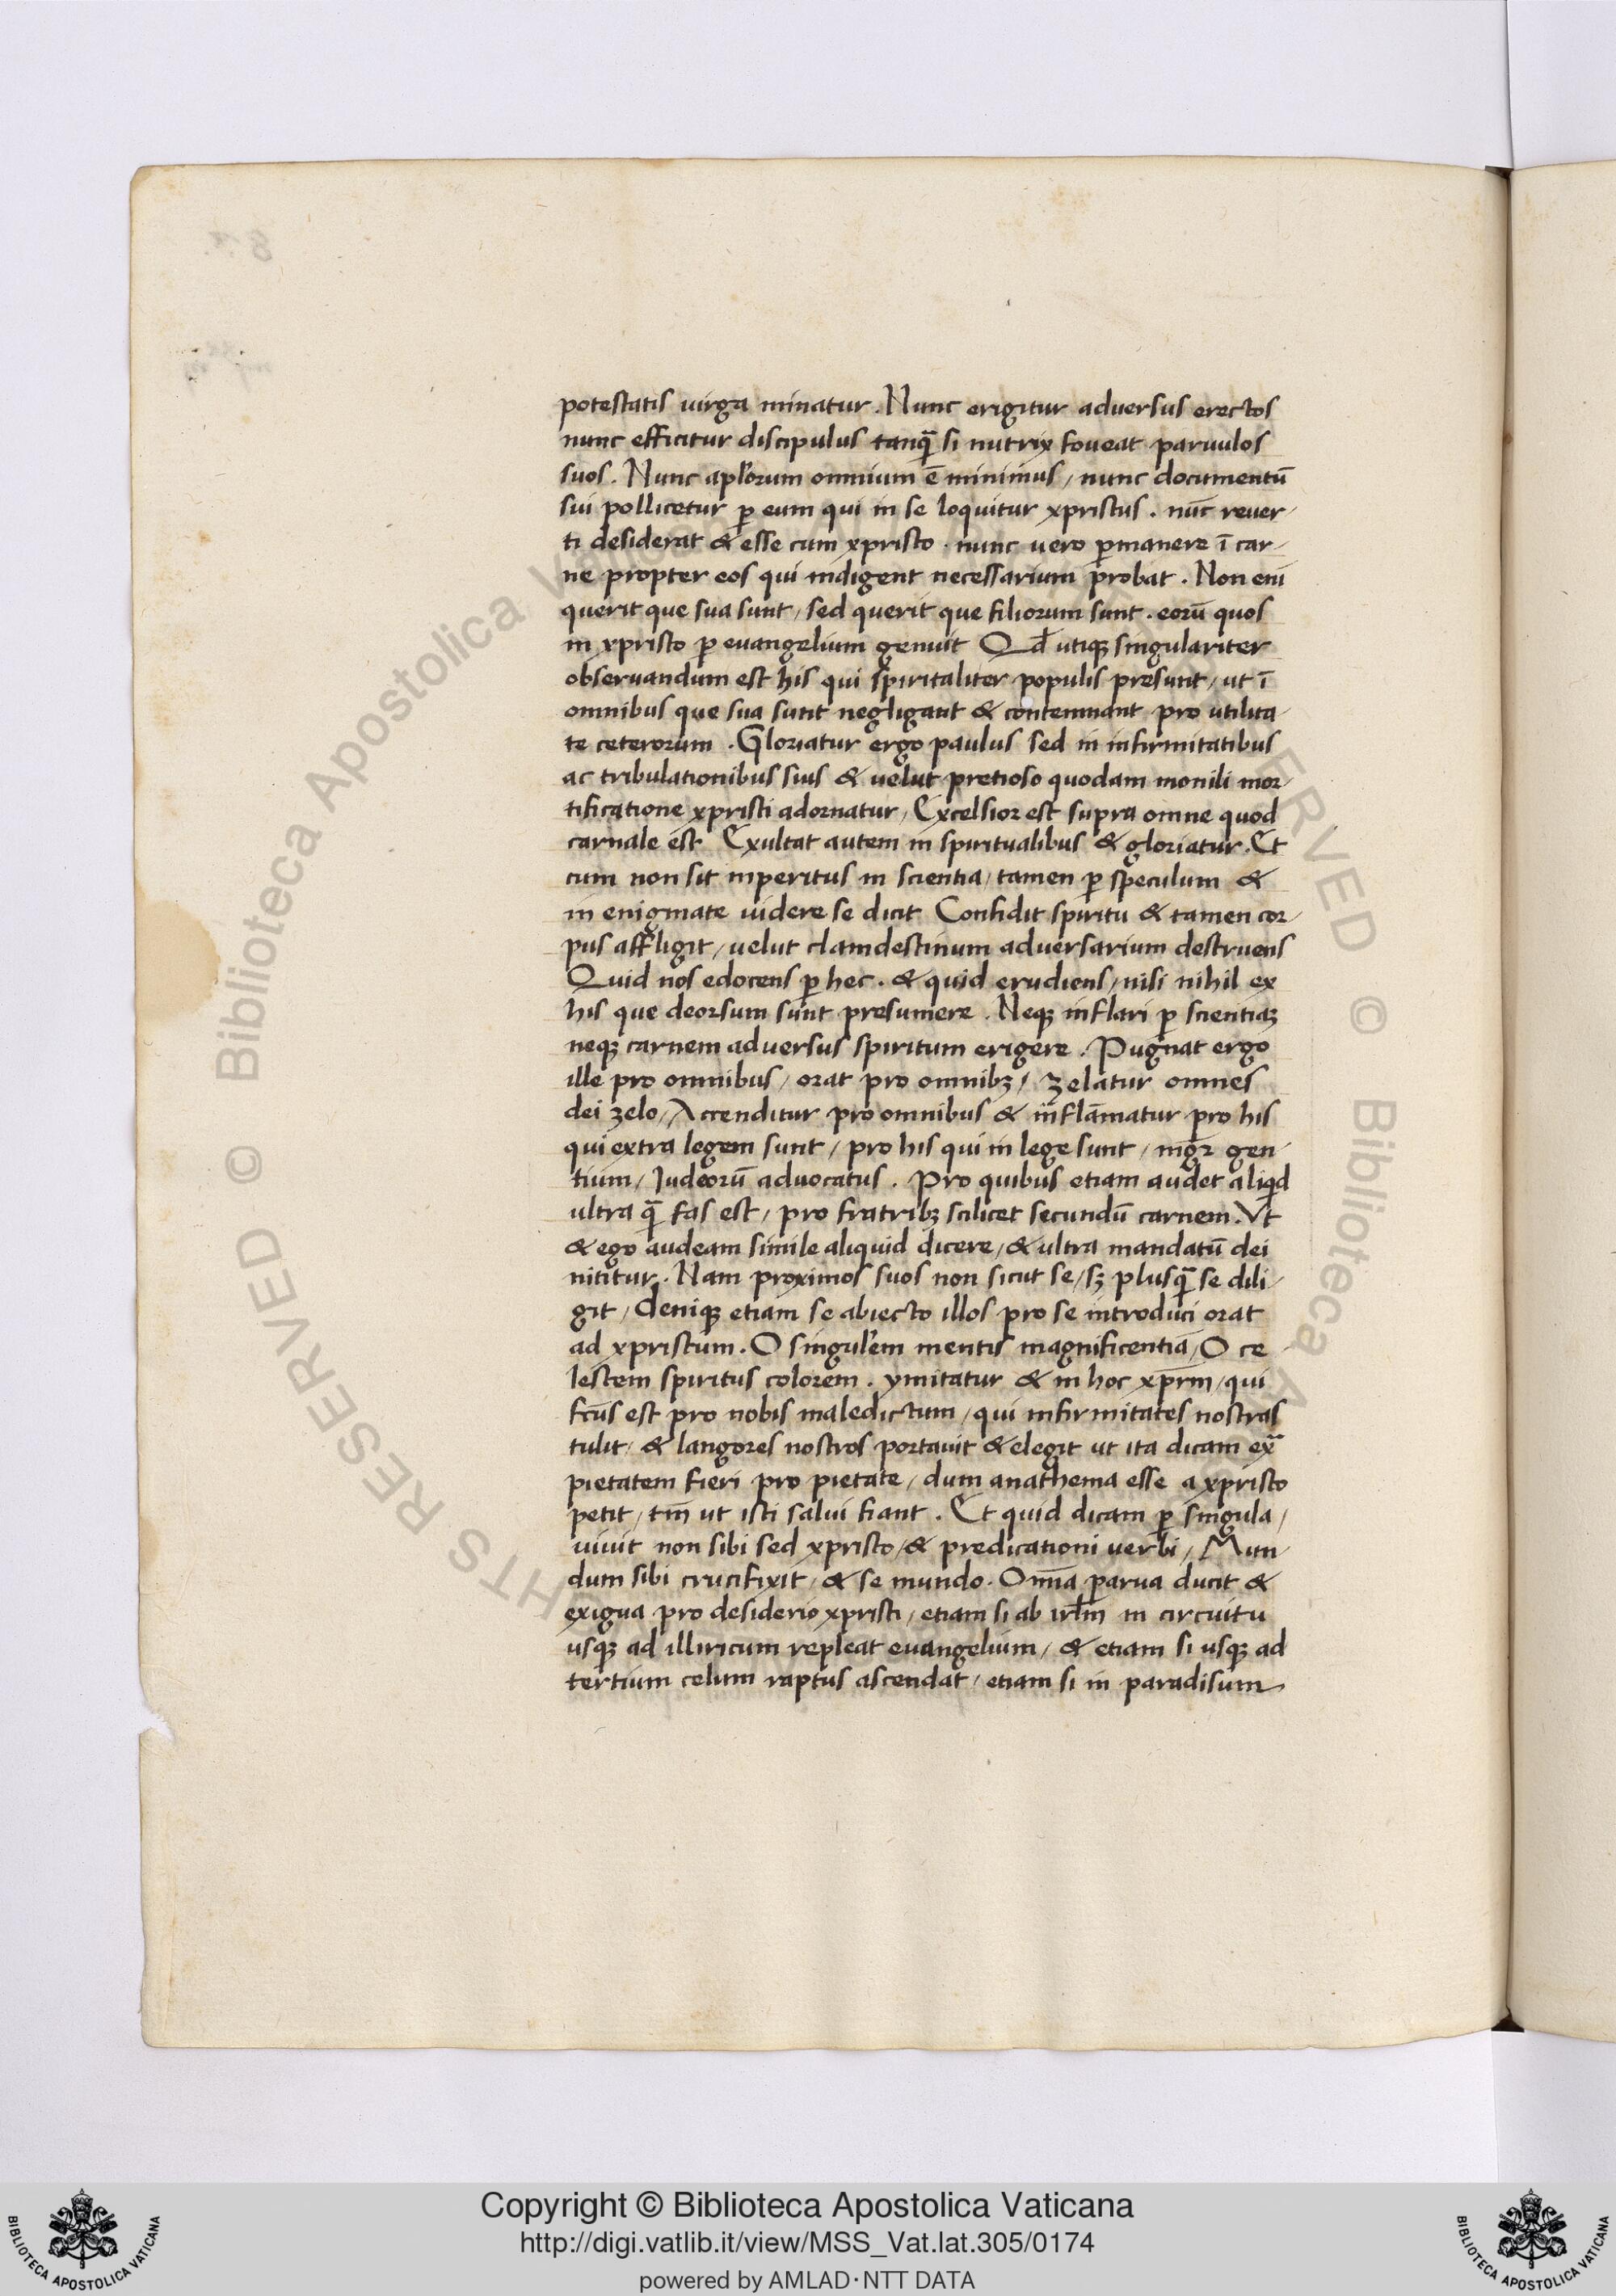 potestatis uirga minatur. Nunc erigitur adversus erectos
nunc efficitur discipulus tanq̄ si nutrix foveat paruulos
suos. Nunc apl'orum omnium ē minimus / nunc documentū
sui pollicetur ꝑ eum qui in se loquitur xpristus. nūc reuer/
ti desiderat & esse cum xpristo. nunc uero ꝑmanere ī car-
ne propter eos qui indigent necessarium ꝓbat. Non eni
querit que sua sunt / sed querit que filiorum sunt. eorū quos
in xpristo ꝑ evangelium genuit Qd̄ utiqꝫ singulariter
observandum est his qui spiritaliter populis presunt / ut ī
omnibus que sua sunt negligant & contemnant pro utilita-
te ceterorum. Gloriatur ergo paulus sed in infirmitatibus
ac tribulationibus suis & uelut pretioso quodam monili mor-
tificatione xpristi adornatur / Excelsior est supra omne quod
carnale est Exultat autem in spiritualibus & gloriatur. Et
cum non sit inperitus in scientia / tamen ꝑ speculum &
in enigmate uidere se dicit Confidit spiritu & tamen cor/
pus affligit / uelut clamdestinum adversarium destruens
Quid nos edocens ꝑ hec. & quid erudiens / nisi nihil ex
his que deorsum sunt presumere. Neqꝫ inflari ꝑ scientiaꝫ
neqꝫ carnem adversus spiritum erigere. Pugnat ergo
ille pro omnibus / orat pro omnibꝫ / zelatur omnes
dei zelo / Accenditur pro omnibus & inflāmatur pro his
qui extra legem sunt / pro his qui in lege sunt / mgr̄ gen-
tium / Iudeorū advocatus. Pro quibus etiam audet aliqid
ultra q̄ fas est / pro fratribꝫ scilicet secundū carnem. Ut
& ego audeam simile aliquid dicere / & ultra mandatū dei
nititur. Nam proximos suos non sicut se / sꝫ plusq̄ se dili/
git / deniqꝫ etiam se abiecto illos pro se introduci orat
ad xpristum. O singul'em mentis magnificentiā / O ce
lestem spiritus colorem. ymitatur & in hoc xprm̄ / qui
fcūs est pro nobis maledictum / qui infirmitates nostras
tulit / & langores nostros portauit & elegit ut ita dicam exᵃ
pietatem fieri pro pietate / dum anathema esse a xpristo
petit / tm̄ ut isti salui fiant. Et quid dicam ꝑ singula /
uiuit non sibi sed xpristo / & predicationi uerbi / Mun-
dum sibi crucifixit / & se mundo. Om̄a parua ducit &
exigua pro desiderio xpristi / etiam si ab irl̄m in circuitu
usqꝫ ad illiricum repleat evangelium / & etiam si usqꝫ ad
tertium celum raptus ascendat / etiam si in paradisum
© Biblioteca Apostolica
RIGHTS RESERVED © Biblioteca A
Copyright © Biblioteca Apostolica Vaticana
http://digi.vatlib.it/view/MSS_Vat.lat.305/0174
powered by AMLAD·NTT DATA
BIBLIOTECA APOSTOLICA VATICANA
BIBLIOTECA APOSTOLICA VATICANA